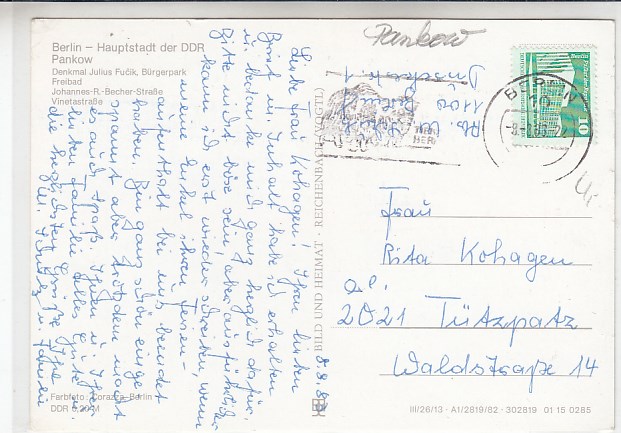 Berlin – Hauptstadt der DDR
Pankow
Denkmal Julius Fučik, Bürgerpark
Freibad
Johannes-R.-Becher-Straße
Vinetastraße
Pankow
1100 Berlin
BERLIN
10
Liebe Frau Kohagen! Ihren lieben
Brief m. Inhalt habe ich erhalten
u. bedanke mich ganz herzlich dafür.
Bitte nicht böse sein, aber ausführlicher
kann ich erst wieder schreiben, wenn
meine Enkel ihren Ferien-
aufenthalt bei uns beendet
haben. Bin ganz schön einge-
spannt aber trotzdem macht
es auch Spaß. Ihnen u. Ihrer
lieben Familie alles Gute u.
die herzlichsten Grüße Ihre
8.9.
BILD UND HEIMAT · REICHENBACH (VOGTL)
Frau
Rita Kohagen
2021 Tützpatz
Waldstraße 14
Farbfoto: Corazza, Berlin
DDR 0,20 M
III/26/13 · A1/2819/82 · 302819 01 15 0285